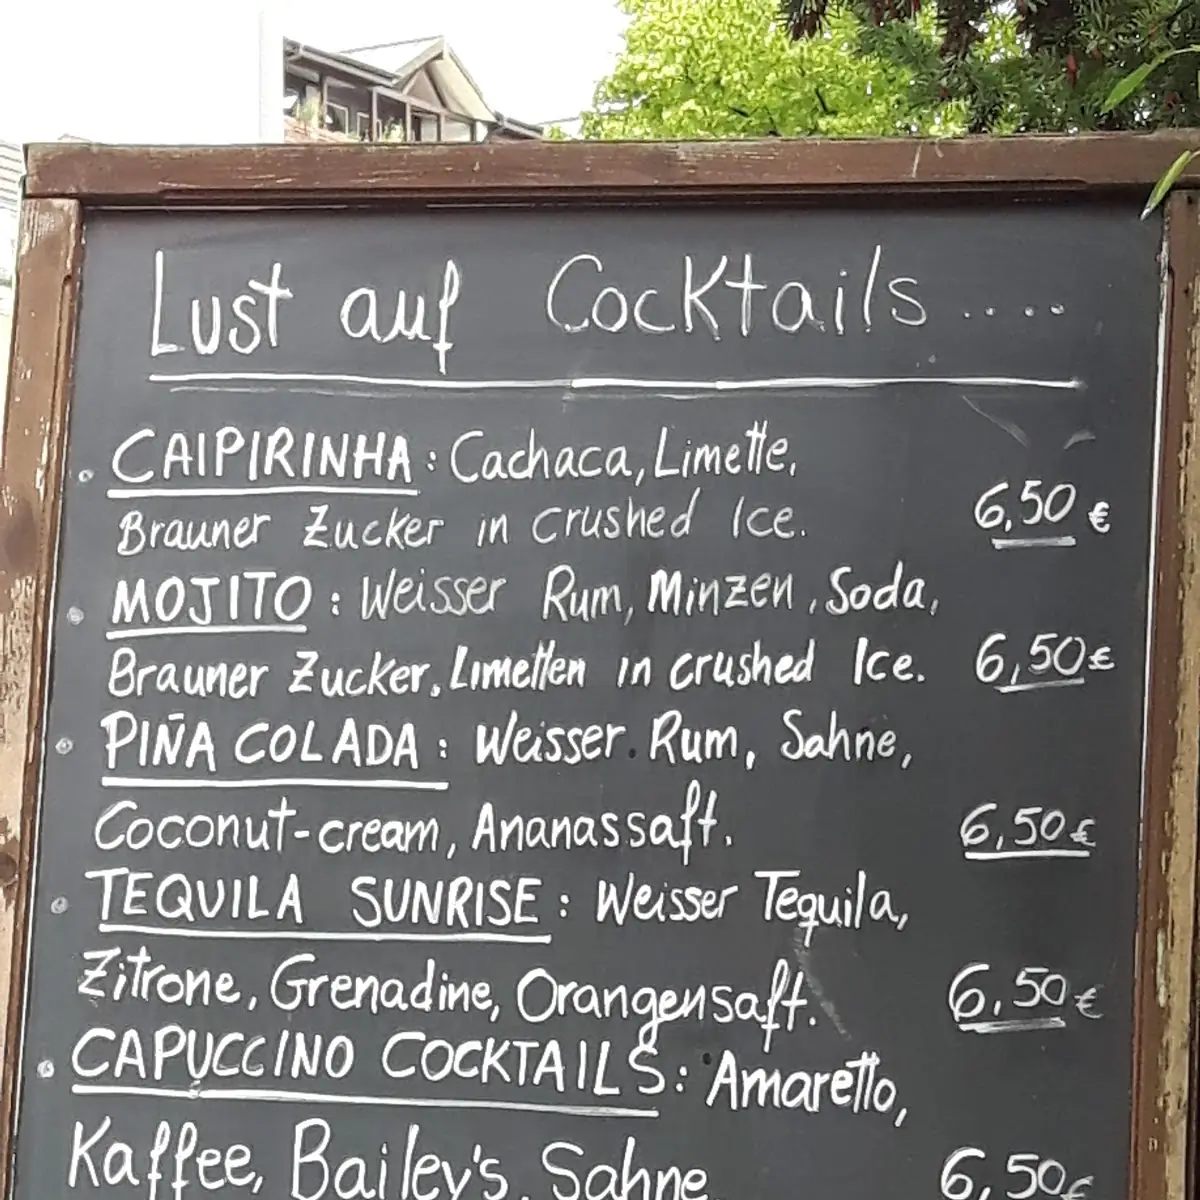 Lust auf Cocktails....
CAIPIRINHA: Cachaca, Limette,
Brauner Zucker in crushed Ice. 6,50 €
MOJITO: Weisser Rum, Minzen, Soda,
Brauner Zucker, Limetten in crushed Ice. 6,50 €
PIÑA COLADA: Weisser Rum, Sahne,
Coconut-cream, Ananassaft. 6,50 €
TEQUILA SUNRISE: Weisser Tequila,
Zitrone, Grenadine, Orangensaft. 6,50 €
CAPUCCINO COCKTAILS: Amaretto,
Kaffee, Bailey's, Sahne 6,50 €